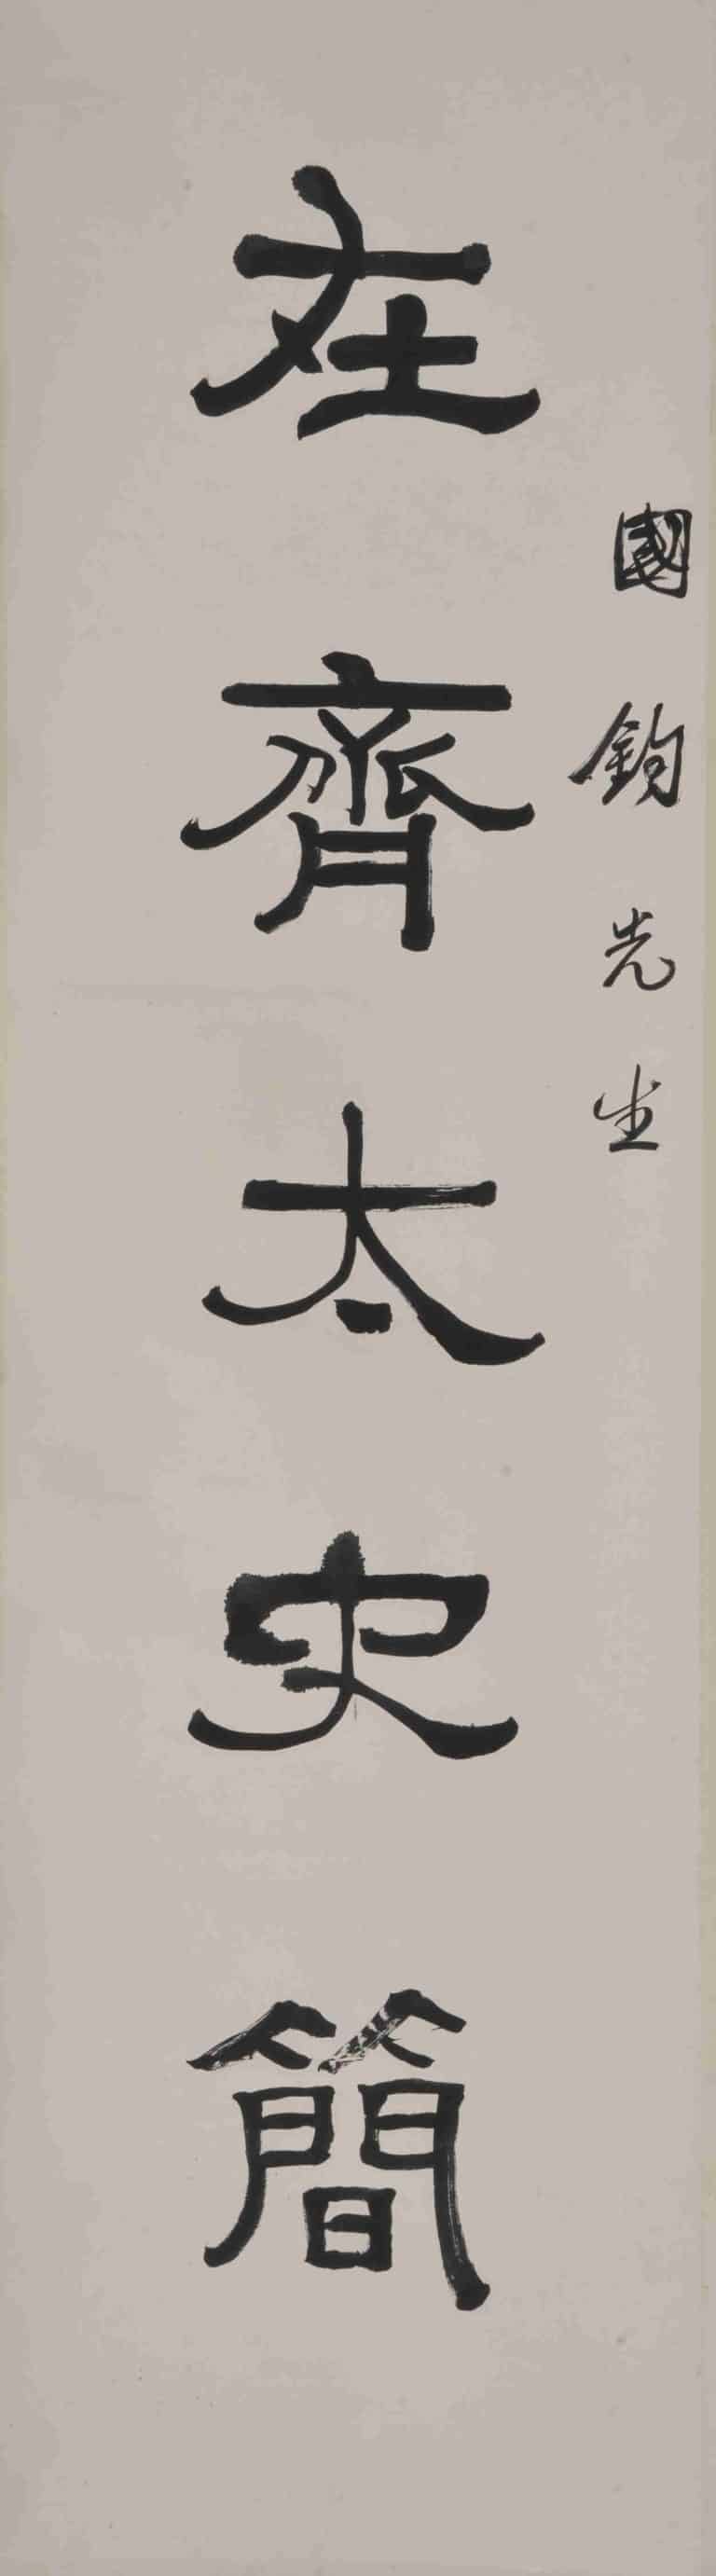 國鈞先生
在齊太史簡